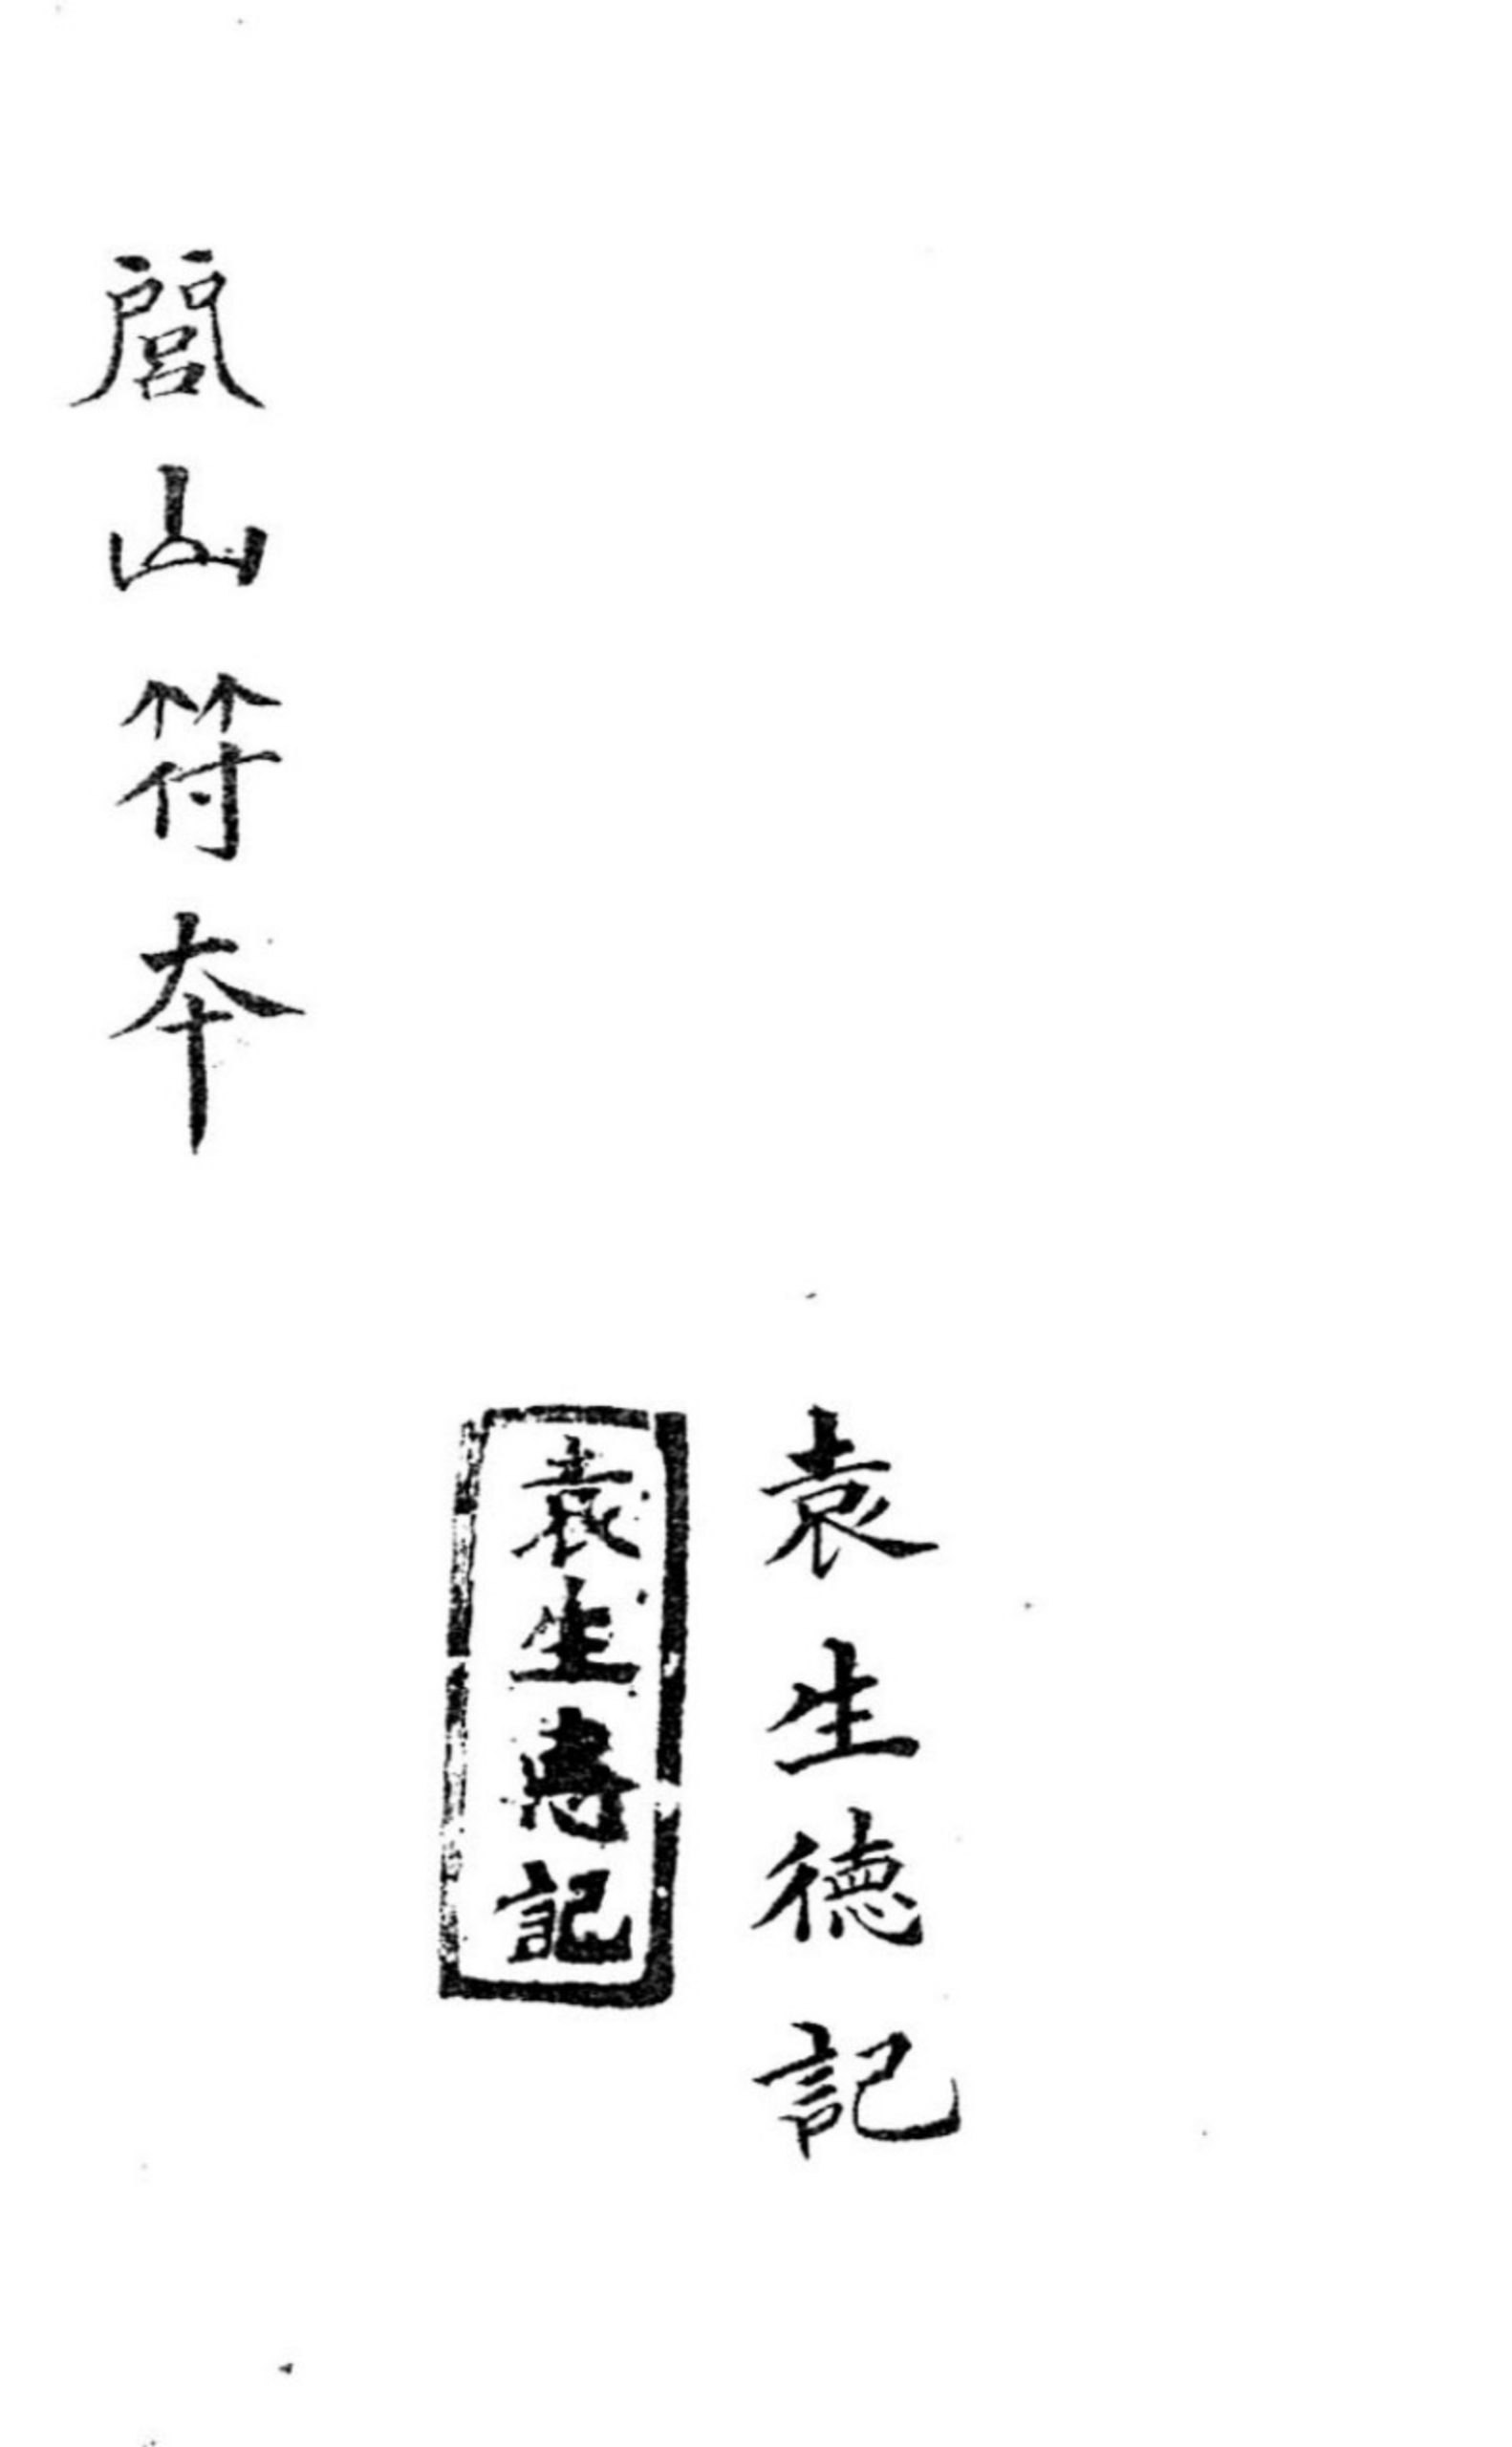 袁生德記
袁生惪記
閭山符本